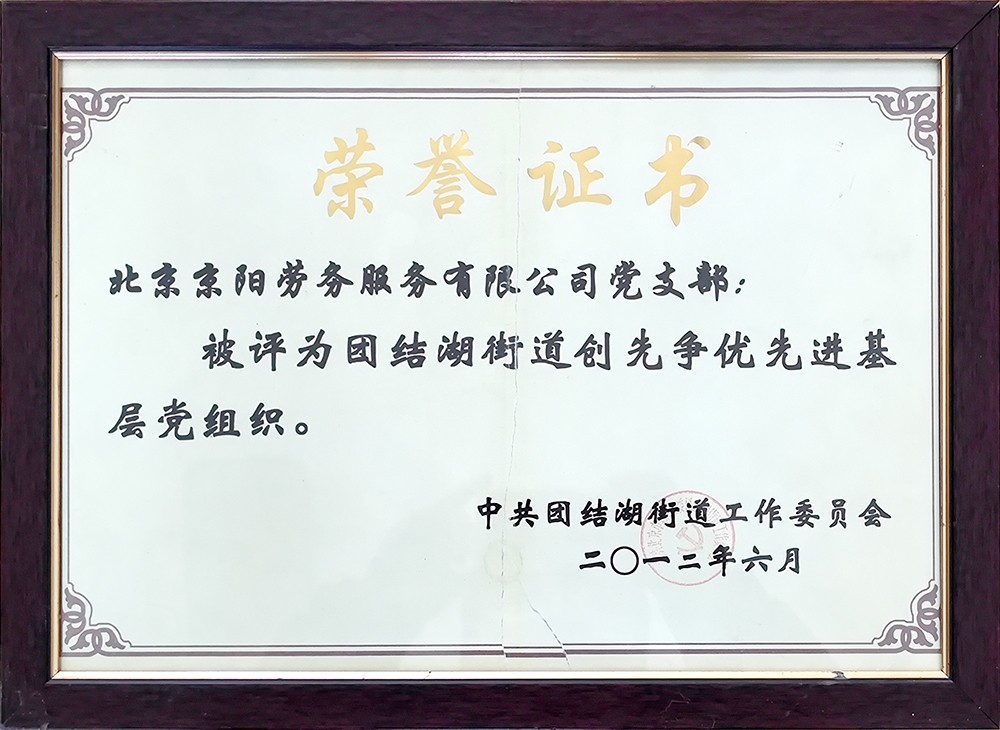 荣誉证书
北京京阳劳务服务有限公司党支部：
被评为团结湖街道创先争优先进基
层党组织。
中共团结湖街道工作委员会
二〇一二年六月